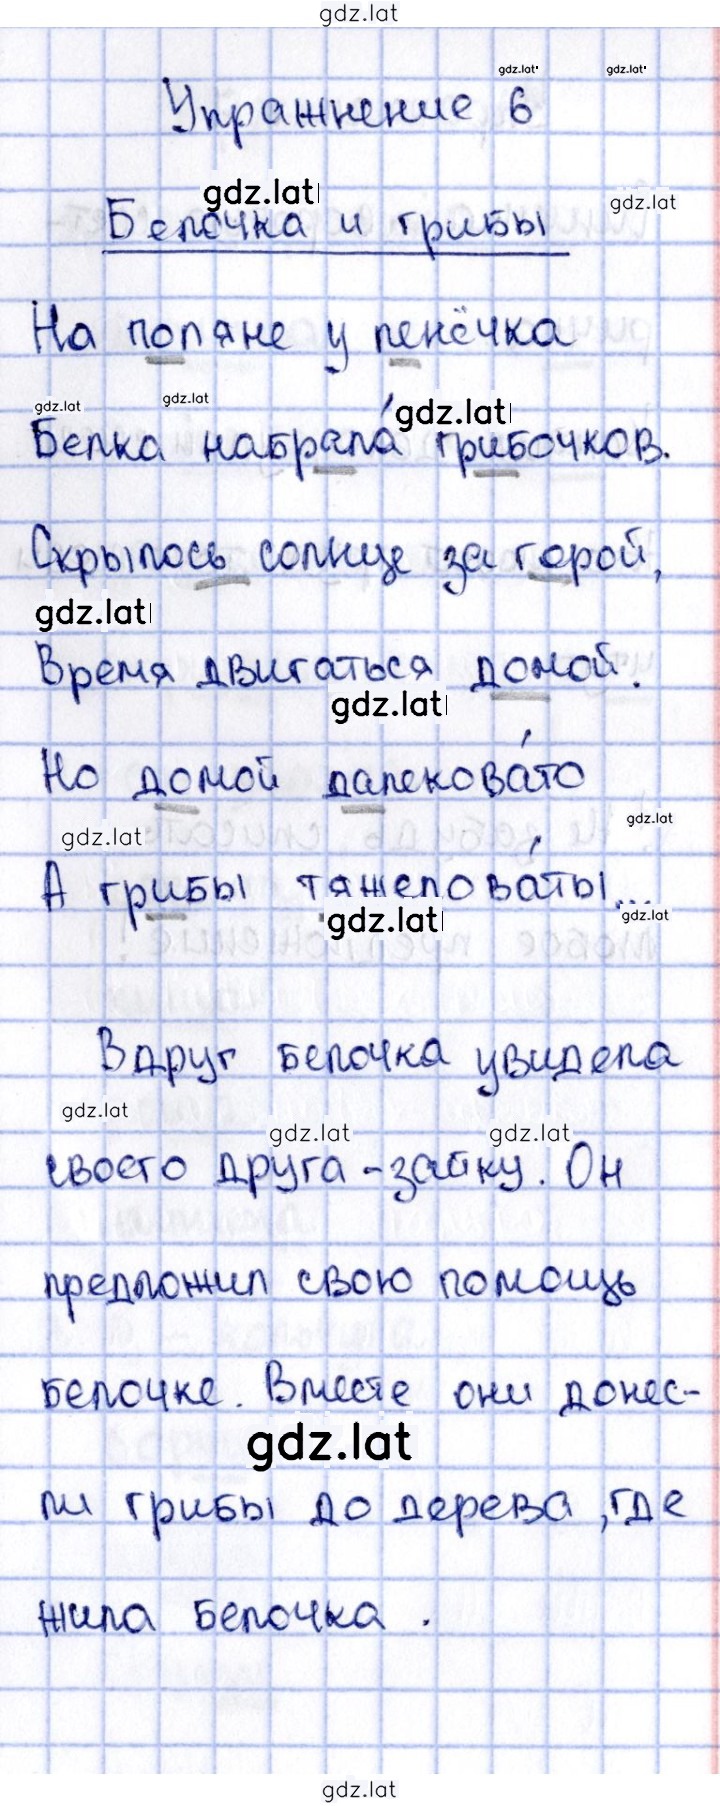 gdz.lat
gdz.lat gdz.lat
Упражнение 6
gdz.lat gdz.lat
Белочка и грибы
На поляне у пенёчка
gdz.lat gdz.lat gdz.lat
Белка набрала́ грибочков.
Скрылось солнце за горой,
gdz.lat
Время двигаться домой.
gdz.lat
Но домой далекова́то
gdz.lat gdz.lat
А грибы тяжелова́ты...
gdz.lat gdz.lat
Вдруг белочка увидела
gdz.lat gdz.lat gdz.lat
своего друга-зайку. Он
предложил свою помощь
белочке. Вместе они донес-
gdz.lat
ли грибы до дерева, где
жила белочка.
gdz.lat